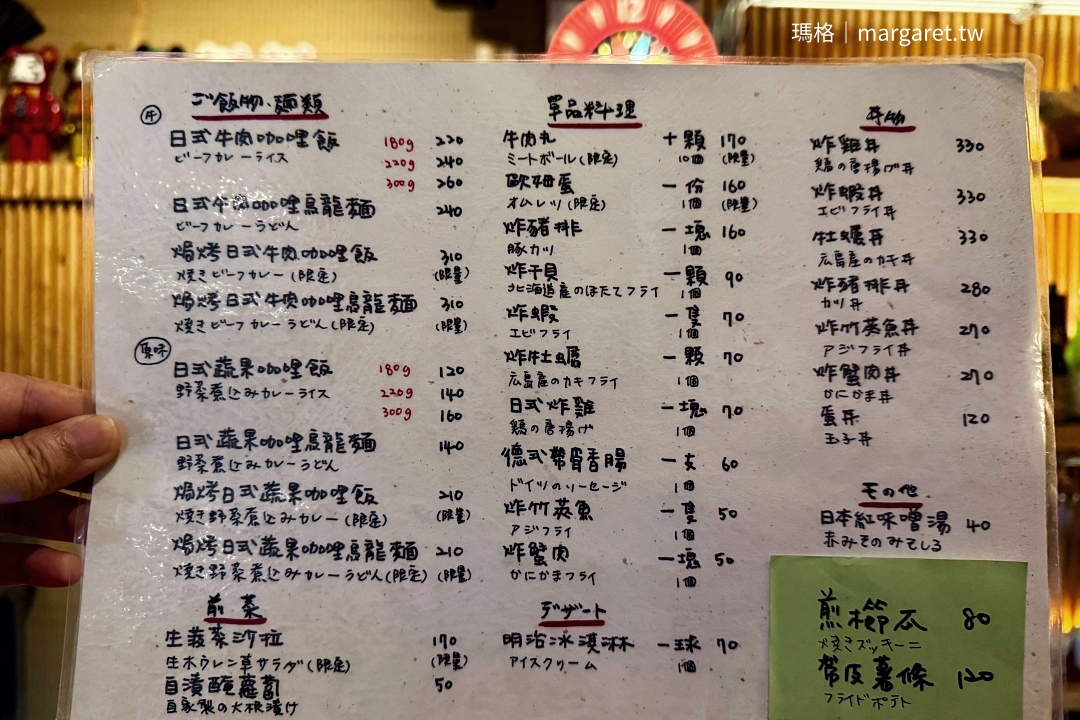 瑪格｜margaret.tw
ご飯物、麵類
牛
日式牛肉咖哩飯 180g 220
ビーフカレーライス 220g 240
300g 260
日式牛肉咖哩烏龍麵 240
ビーフカレーうどん
焗烤日式牛肉咖哩飯 310
焼きビーフカレー(限定) (限量)
焗烤日式牛肉咖哩烏龍麵 310
焼きビーフカレーうどん(限定) (限量)
原味
日式蔬果咖哩飯 180g 120
野菜煮込みカレーライス 220g 140
300g 160
日式蔬果咖哩烏龍麵 140
野菜煮込みカレーうどん
焗烤日式蔬果咖哩飯 210
焼き野菜煮込みカレー(限定) (限量)
焗烤日式蔬果咖哩烏龍麵 210
焼き野菜煮込みカレーうどん(限定) (限量)
前菜
生菠菜沙拉 170
生ホウレン草サラダ(限定) (限量)
自漬醃蘿蔔 50
自家製の大根漬け
單品料理
牛肉丸 十顆 170
ミートボール(限定) 10個 (限量)
歐姆蛋 一份 160
オムレツ(限定) 1個 (限量)
炸豬排 一塊 160
豚カツ 1個
炸干貝 一顆 90
北海道産のほたてフライ 1個
炸蝦 一隻 70
エビフライ 1個
炸牡蠣 一顆 70
広島産のカキフライ 1個
日式炸雞 一塊 70
鶏の唐揚げ 1個
德式帶骨香腸 一支 60
ドイツのソーセージ 1個
炸竹莢魚 一隻 50
アジフライ 1個
炸蟹肉 一塊 50
かにかまフライ 1個
デザート
明治冰淇淋 一球 70
アイスクリーム 1個
丼物
炸雞丼 330
鶏の唐揚げ丼
炸蝦丼 330
エビフライ丼
牡蠣丼 330
広島産のカキ丼
炸豬排丼 280
カツ丼
炸竹莢魚丼 270
アジフライ丼
炸蟹肉丼 270
かにかま丼
蛋丼 120
玉子丼
その他
日本紅味噌湯 40
赤みそのみそしる
煎櫛瓜 80
焼きズッキーニ
帶皮薯條 120
フライドポテト